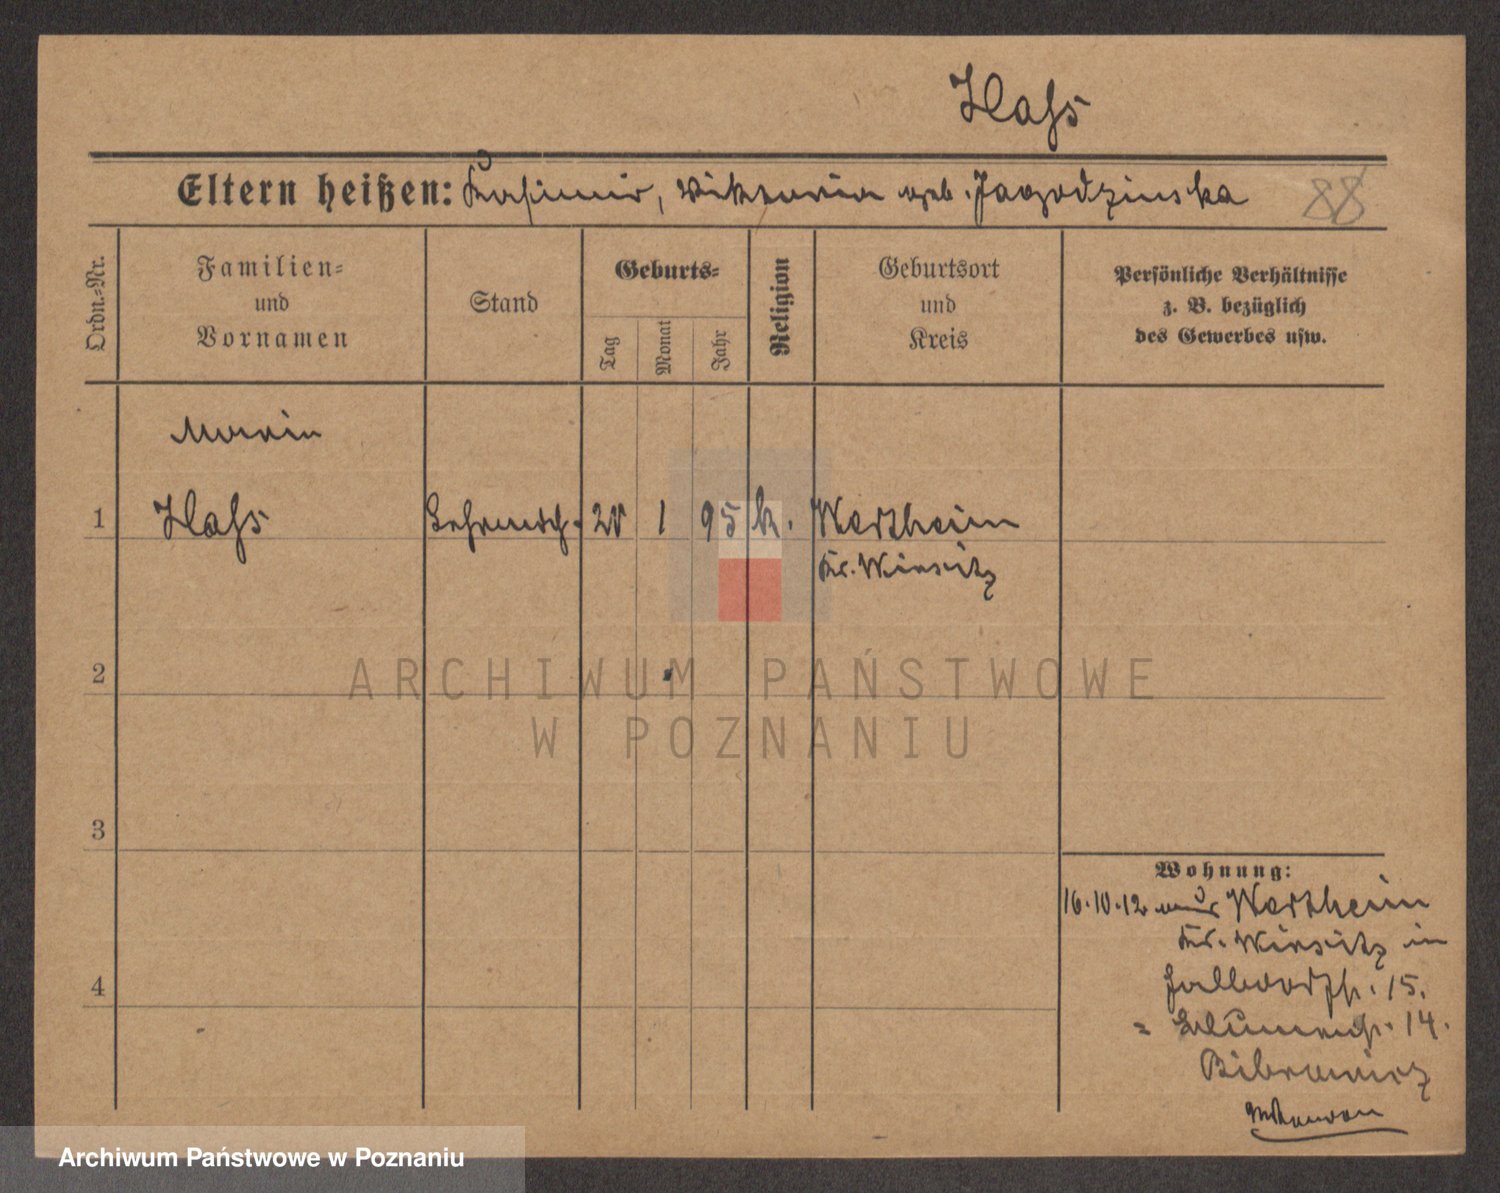 Hass
Eltern heißen: Kasimir, Viktoria geb. Jagodzinska 88
Ordn.-Nr.
Familien-
und
Vornamen
Stand
Geburts-
Tag
Monat
Jahr
Religion
Geburtsort
und
Kreis
Persönliche Verhältnisse
z. B. bezüglich
des Gewerbes usw.
1 Hass 1 95 k. Wertheim
Kr. Wirsitz
ARCHIWUM PAŃSTWOWE
2
W POZNANIU
3
Wohnung:
16.10.12 Wertheim
Kr. Wirsitz in
4
15.
Blumenstr. 14.
Archiwum Państwowe w Poznaniu